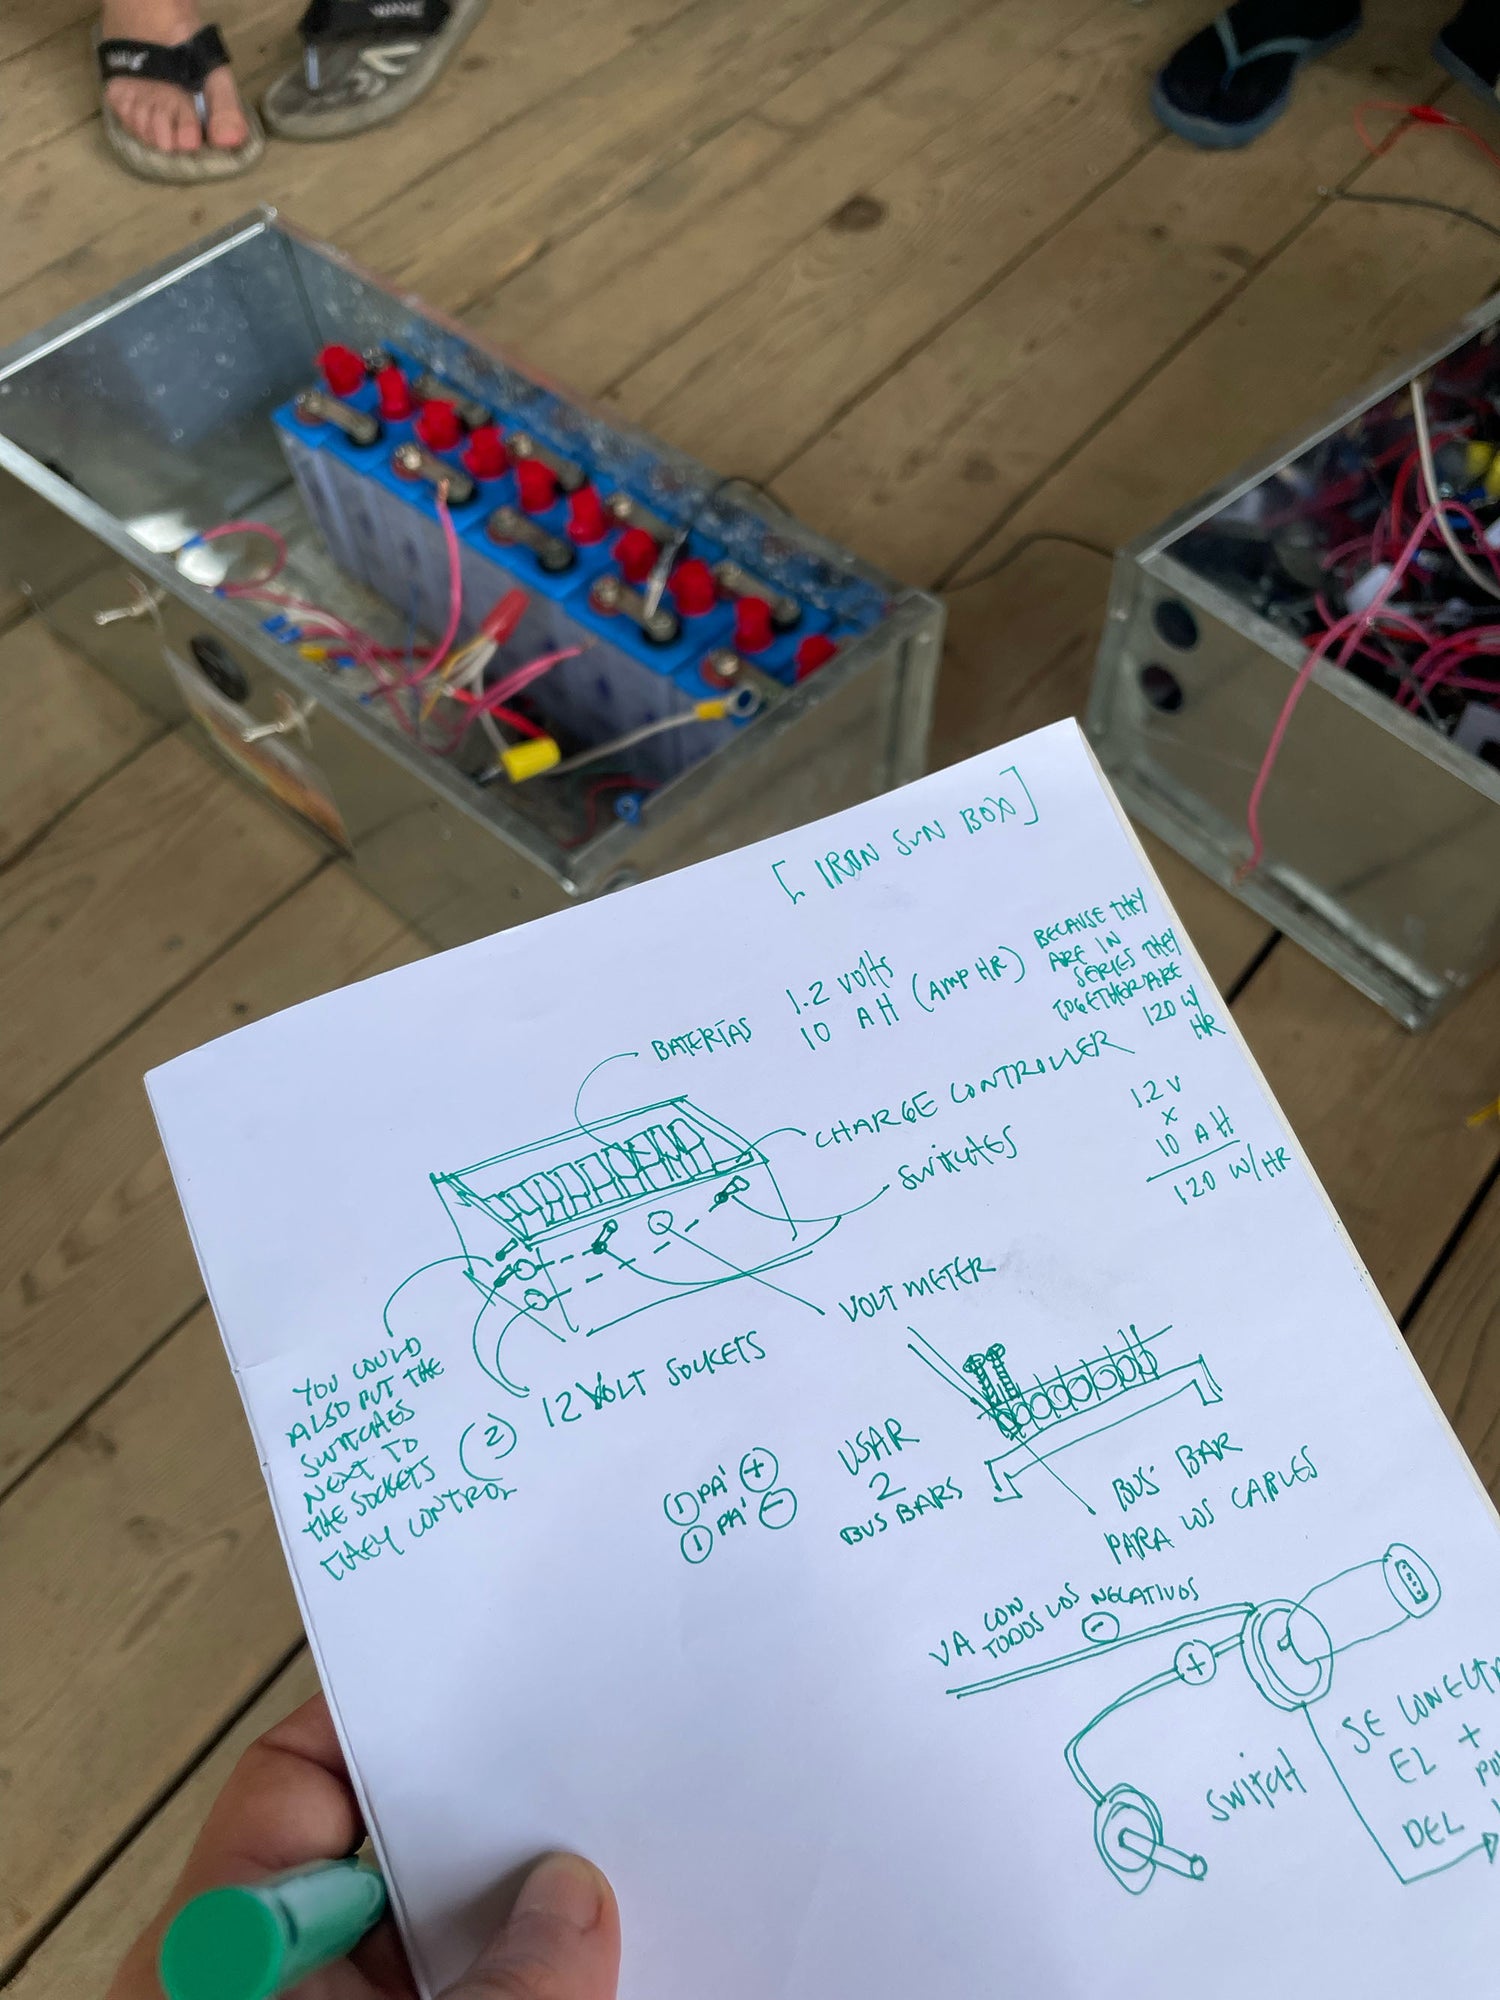 [IRON SUN BOX]
BATERÍAS
1.2 VOLTS
10 AH (AMP HR)
BECAUSE THEY
ARE IN
SERIES THEY
TOGETHER ARE
120 W/
HR
CHARGE CONTROLLER
1.2 V
X
10 AH
120 W/HR
SWITCHES
VOLT METER
YOU COULD
ALSO PUT THE
SWITCHES
NEXT TO
THE SOCKETS
THEY CONTROL
(2) 12 VOLT SOCKETS
1 PA' +
1 PA' -
USAR
2
BUS BARS
BUS BAR
PARA LOS CABLES
VA CON
TODOS LOS NEGATIVOS
-
+
SWITCH
SE
EL +
DEL